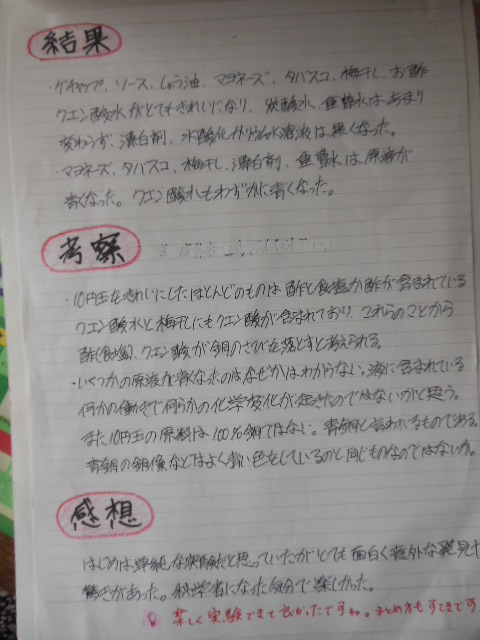 結果
・ケチャップ、ソース、しょう油、マヨネーズ、タバスコ、梅干し、お酢
クエン酸水がとてもきれいになり、炭酸水、重曹水はあまり
変わらず、漂白剤、水酸化ナトリウム水溶液は黒くなった。
・マヨネーズ、タバスコ、梅干し、漂白剤、重曹水は原液が
青くなった。クエン酸水もわずかに青くなった。
考察
・10円玉をきれいにしたほとんどのものは酢と食塩か酢が含まれている
クエン酸水と梅干しにもクエン酸が含まれており、これらのことから
酢(食塩)、クエン酸が銅のさびを落とすと考えられる。
・いくつかの原液が青くなったのはなぜかはわからない。液に含まれている
何かの働きで何らかの化学変化が起きたのではないかと思う。
また10円玉の原料は100%銅ではない。青銅と言われるものである。
青銅の銅像などはよく青い色をしているのと同じものなのではないか。
感想
はじめは単純な実験だと思っていたがとても面白く意外な発見や
驚きがあった。科学者になった気分で楽しかった。
楽しく実験できて良かったですね。まとめ方もすてきです